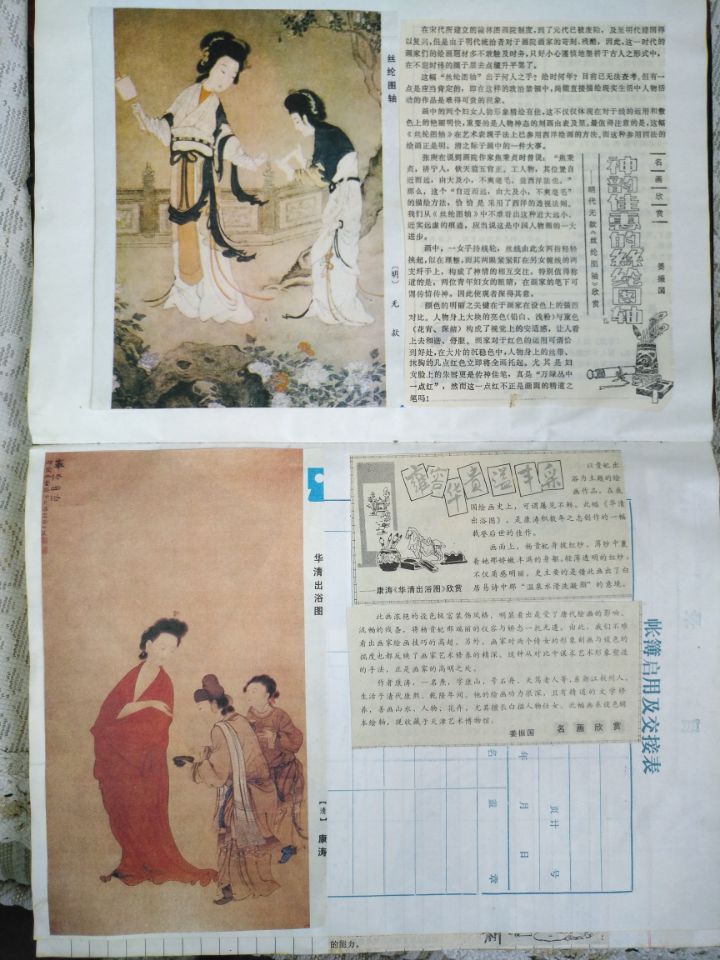 丝纶图轴
〔明〕 无 款
在宋代所建立的翰林图画院制度,到了元代已被废除,及至明代初得
以复兴,但是由于明代统治者对于画院画家的苛刻、残酷,因此,这一时代的
画家们的绘画题材多不敢触及时务,只好小心谨慎地墨祈于古人之形式中,
这幅“丝纶图轴”出于何人之手?绘时何年?目前已无法查考,但有一
点是应当肯定的,即在这样的政治禁锢中,尚能直接描绘现实生活中人物活
动的作品是难得可贵的现象。
画中的两个妇女人物形象精绘有佳,这不仅仅体现在对于线的运用和着
色上的艳丽明快,重要的是人物神态的刻画由表及里。最值得注意的是,这幅
《丝纶图轴》在艺术表现手法上已参用西洋绘画的方法。而这种参用西法的
绘画正是明、清之际于画中的一件大事。
张庚在说到画院作家焦秉贞时曾说:“焦秉
贞,济宁人,钦天监五官正。工人物,其位置自
近而远,由大及小,不爽毫毛,盖西洋法也。”
那么,这个“自近而远,由大及小,不爽毫毛”
的描绘方法,恰恰是采用了西洋的透视法则。
我们从《丝纶图轴》中不难看出这种近大远小、
近实远虚的痕迹,应当说这是中国人物画的一大
进步。
画中,一女手持线轮,丝线由此女两指轻轻
挑起,似在理整,而其两眼紧紧盯在另女缠线的两
支纤手上,构成了神情的相互交注。特别值得称
道的是,两位青年妇女的眼睛,在画家的笔下可
谓传情传神。因此使观者深得其意。
颜色的明丽之关键在于画家在设色上的强烈
对比。人物身上大块的亮色(铅白、浅粉)与重色
(花青、深赭)构成了视觉上的安适感,让人看
上去和谐、舒服。画家对于红色的运用可谓恰
到好处,在大片的沉稳色中,人物身上的丝带、
抹胸的几点红色立即将全画托起。尤其是妇
女脸上的朱唇更是传神佳笔,真是“万绿丛中
一点红”,然而这一点红不正是画面的精道之
笔吗!
名画欣赏
神韵佳惠的丝纶图轴
——明代无款《丝纶图轴》欣赏
姜振国
华清出浴图
〔清〕 康涛
雍容华贵溢丰采
——康涛《华清出浴图》欣赏
以贵妃出
浴为主题的绘
画作品,在我
国绘画史上,可谓屡见不鲜。此幅《华清
出浴图》,是康涛积数年之志创作的一幅
载誉后世的佳作。
画面上,杨贵妃身披红纱,薄纱中裹
着她那娇嫩丰满的身躯。轻薄透明的红纱,
不仅质感明丽,更主要的是借此画出了白
居易诗中那“温泉水滑洗凝脂”的意境。
此画浓艳的设色极富装饰风格,明显看出是受了唐代绘画的影响。
流畅的线条,将杨贵妃那端丽的仪容与娇态一托无遗。由此,我们不难
看出画家绘画技巧的高超。另外,画家对两个侍女的形象刻画与设色的
深度也都反映了画家艺术修养的精深。这种从对比中谋求艺术形象塑造
的手法,正是画家的高明之处。
作者康涛,一名焘,字康山,号石舟、天笃老人等,系浙江杭州人,
生活于清代康熙、乾隆年间。他的绘画功力很深,且有精道的文学修
养,善画山水、人物、花卉,尤其擅长白描人物仕女。此幅画系设色绢
本绘物,现收藏于天津艺术博物馆。
姜振国 名画欣赏
帐簿启用及交接表
年 月 日
页计 号
名 盖 章
的阻力。